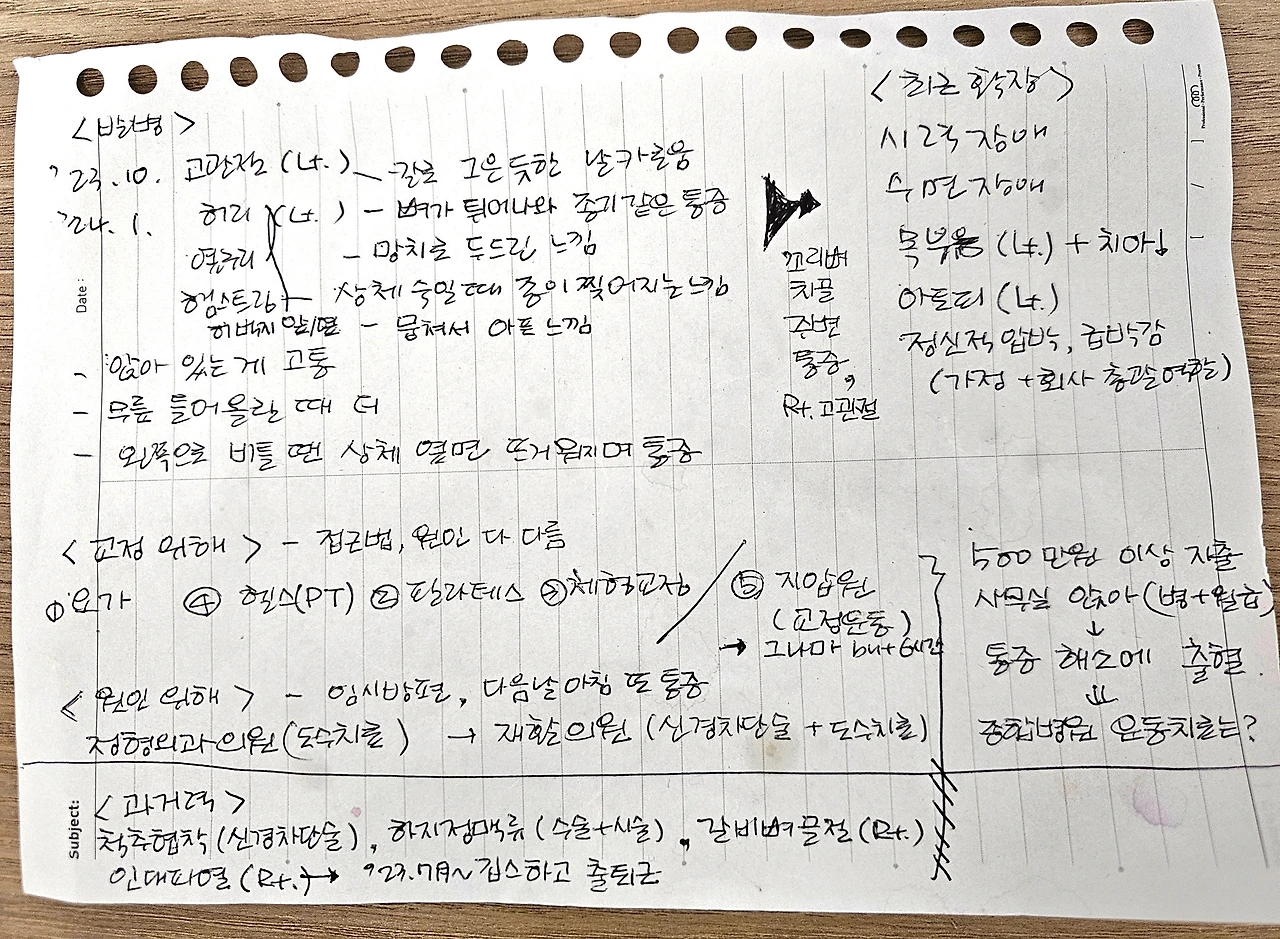 <발병>
'23.10. 고관절 (Lt.) - 칼로 그은 듯한 날카로움
'24. 1. 허리 (Lt.) - 뼈가 튀어나와 종기같은 통증
옆구리 - 망치로 두드린 느낌
햄스트링 - 상체 숙일 때 종이 찢어지는 느낌
허벅지 앞/옆 - 뭉쳐서 아픈 느낌
- 앉아 있는 게 고통
- 무릎 들어올릴 때 더
- 왼쪽으로 비틀 땐 상체 열면 뜨거워지며 통증
꼬리뼈
치골
주변
통증,
Rt. 고관절
<최근 확장>
시력장애
수면장애
목부음 (Lt.) + 치아
아토피 (Lt.)
정신적 압박, 급박감
(가정 + 회사 총괄역할)
<교정 위해> - 접근법, 원인 다 다름
①요가 ④ 헬스(PT) ② 필라테스 ③체형교정 / ⑤ 지압원
(교정운동)
→ 그나마 but 6시간
<원인 위해> - 임시방편, 다음날 아침 또 통증
정형외과의원 (도수치료) → 재활의원 (신경차단술 + 도수치료)
500만원 이상 지출
사무실 앉아 (병+월합)
↓
통증 해소에 출혈
⇓
종합병원 운동치료는?
Subject:
Date:
<과거력>
척추협착(신경차단술), 하지정맥류(수술+시술), 갈비뼈골절(Rt.)
인대파열(Rt.) → '23.7월~깁스하고 출퇴근